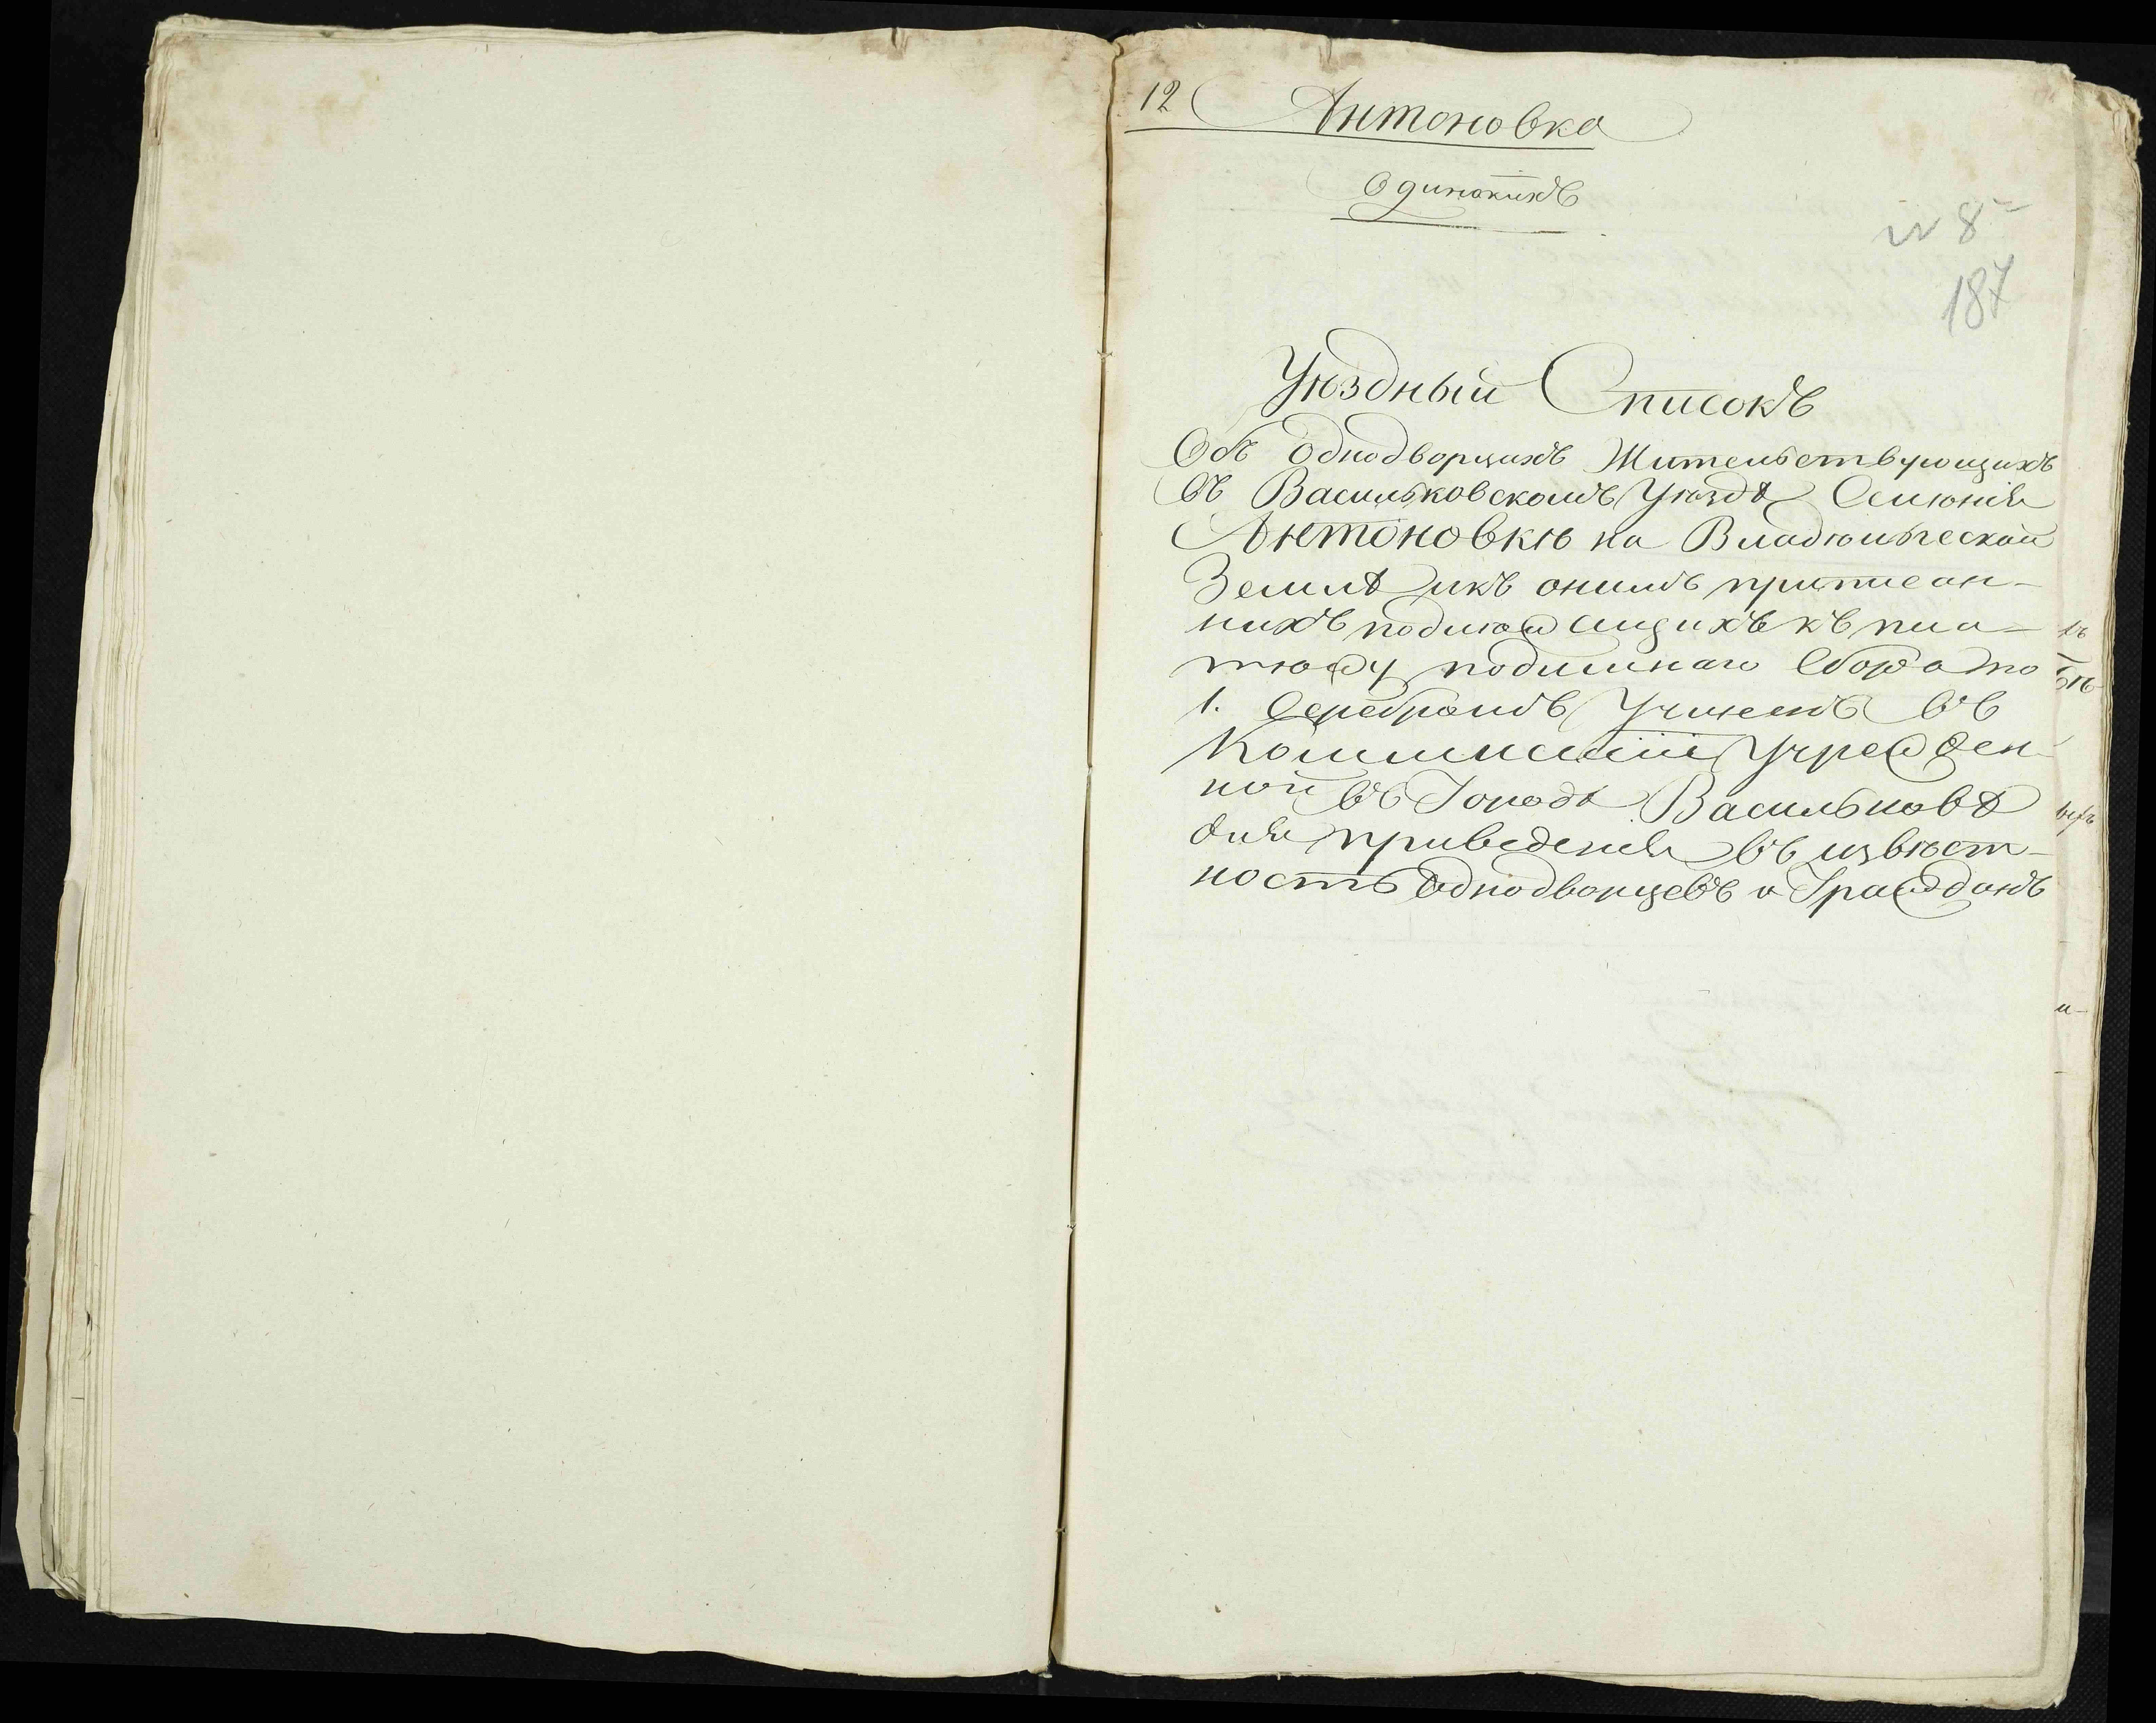 12 Антоновка
Одинокихъ
187
Уѣздный Списокъ
Объ Однодворцахъ Жительствующихъ
въ Васильковскомъ Уѣздѣ Селеніи
Антоновкѣ на Владѣльческой
Землѣ икъ онимъ приписан-
нихъ подлежащихъ къ пла-
тежу подимнаго Сбора по
1. Серебромъ Учиненъ въ
Коммиссіи Учрежден-
ной въ Городѣ Васильковѣ
для приведенія въ извѣст-
ность Однодворцевъ и Гражданъ